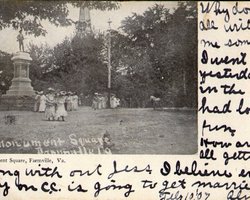 Monument Square
Farmville Va
ent Square, Farmville, Va.
Why do
all wri
me som
I went
yesterd
in the
had lo
fun.
How are
all gett
ng with out Jess I believe
y on CC. is going to get marri